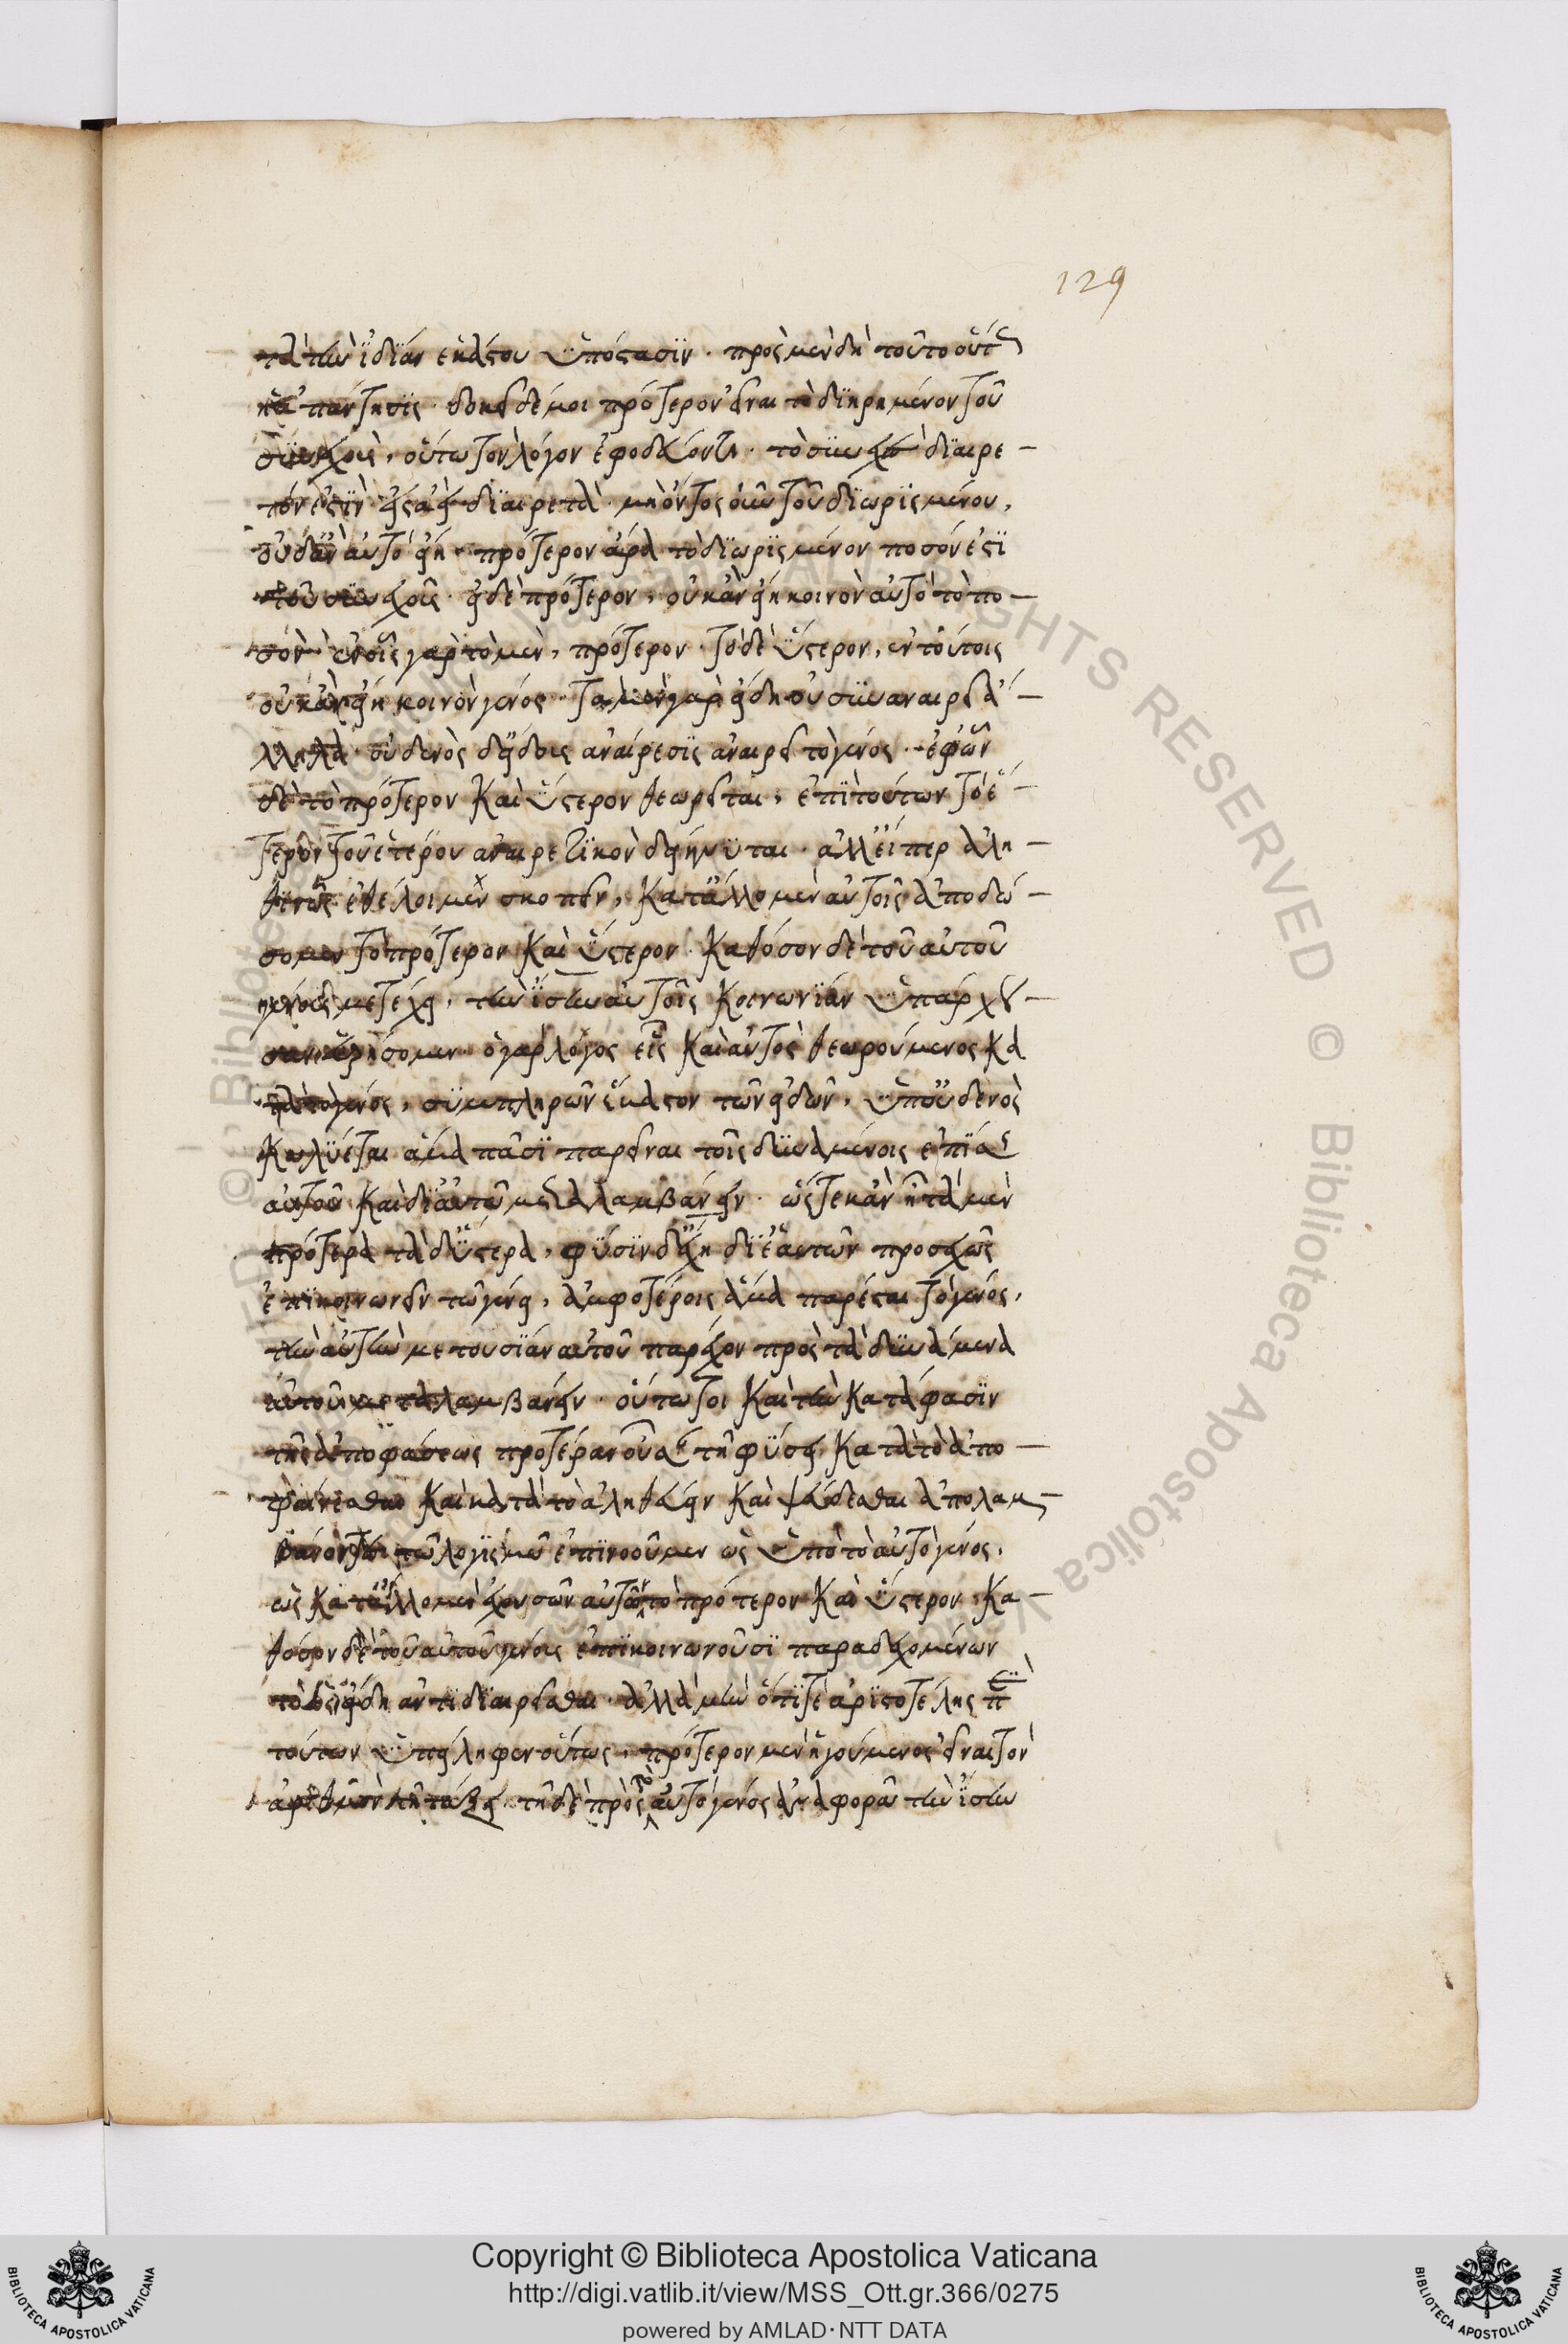 129
τὰ τὴν ἰδίαν ἑκάστου ὑπόστασιν. πρὸς μὲν δὴ τοῦτο οὕτως
ἡ ἀπάντησις. δοκεῖ δέ μοι πρότερον εἶναι τὸ διῃρημένον τοῦ
συνεχοῦς, οὕτω τὸν λόγον ἐφοδεύοντι. τὸ συνεχὲς διαιρε-
τόν ἐστιν εἰς ἀεὶ διαιρετὰ. μὴ ὄντος οὖν τοῦ διωρισμένου,
οὐδ' ἂν αὐτὸ εἴη. πρότερον ἄρα τὸ διωρισμένον ποσόν ἐστι
τοῦ συνεχοῦς. εἰ δὲ πρότερον, οὐκ ἂν εἴη κοινὸν αὐτὸ τὸ πο-
σὸν ἐν οἷς γὰρ τὸ μὲν, πρότερον. τὸ δὲ ὕστερον, ἐν τούτοις
οὐκ ἂν εἴη κοινὸν γένος. τὰ μὲν γὰρ εἴδη οὐ συναναιρεῖ ἄ-
λληλα. οὐδενὸς δ' εἴδους ἀναίρεσις ἀναιρεῖ τὸ γένος. ἐφ' ὧν
δὲ τὸ πρότερον καὶ ὕστερον θεωρεῖται, ἐπὶ τούτων τὸ ἕ-
τερον τοῦ ἑτέρου ἀναιρετικὸν δείκνυται. ἀλλ' εἴπερ ἀλη-
θῶς ἐθέλοιμεν σκοπεῖν, κατ' ἄλλο μὲν αὐτοῖς ἀποδώ-
σομεν τὸ πρότερον καὶ ὕστερον. καθόσον δὲ τοῦ αὐτοῦ
γένους μετέχει, τὴν ἴσην αὐτοῖς κοινωνίαν ὑπάρχου-
σαν εὑρήσομεν. ὁ γὰρ λόγος εἷς καὶ αὐτὸς θεωρούμενος κα
τὰ τὸ γένος, συμπληρῶν ἕκαστον τῶν εἰδῶν, ὑπ' οὐδενὸς
κωλύεται ἅμα πᾶσι παρεῖναι τοῖς δυναμένοις ἐπίσης
αὐτοῦ καὶ δι' αὐτῶν μεταλαμβάνειν. ὥστε κἂν ᾖ τὰ μὲν
πρότερα τὰ δ' ὕστερα, φύσιν δ' ἔχῃ δι' ἑαυτῶν προσεχῶς
ἐπικοινωνεῖν τῷ γένει, ἀμφοτέροις ἅμα παρέσται τὸ γένος,
τὴν αὐτὴν μετουσίαν αὐτοῦ παρέχον πρὸς τὰ δυνάμενα
αὐτοῦ μεταλαμβάνειν. οὕτω τοι καὶ τὴν κατάφασιν
τῆς ἀποφάσεως προτέραν οὖσαν τῇ φύσει, κατὰ τὸ ἀπο-
φαίνεσθαι καὶ κατὰ τὸ ἀληθεύειν καὶ ψεύδεσθαι ἀπολαμ-
βάνοντες τῷ λογισμῷ ἐπινοοῦμεν ὡς ὑπὸ τὸ αὐτὸ γένος,
ὡς κατ' ἄλλο μὲν ἐχουσῶν αὐτῶν τὸ πρότερον καὶ ὕστερον. κα-
θόσον δὲ τοῦ αὐτοῦ γένους ἐπικοινωνοῦσι παραδεχομένων
τὸ ὡς εἴδη ἀντιδιαιρεῖσθαι. ἀλλὰ μὴν ὅτι γε ἀριστοτέλης περὶ
τούτων ὑπείληφεν οὕτως, πρότερον μὲν ἡγούμενος εἶναι τὸν
ἀριθμὸν τῇ τάξει, τῇ δὲ πρὸς τὸ αὐτὸ γένος ἀναφορᾷ τὴν ἴσην
Copyright © Biblioteca Apostolica Vaticana
http://digi.vatlib.it/view/MSS_Ott.gr.366/0275
powered by AMLAD·NTT DATA